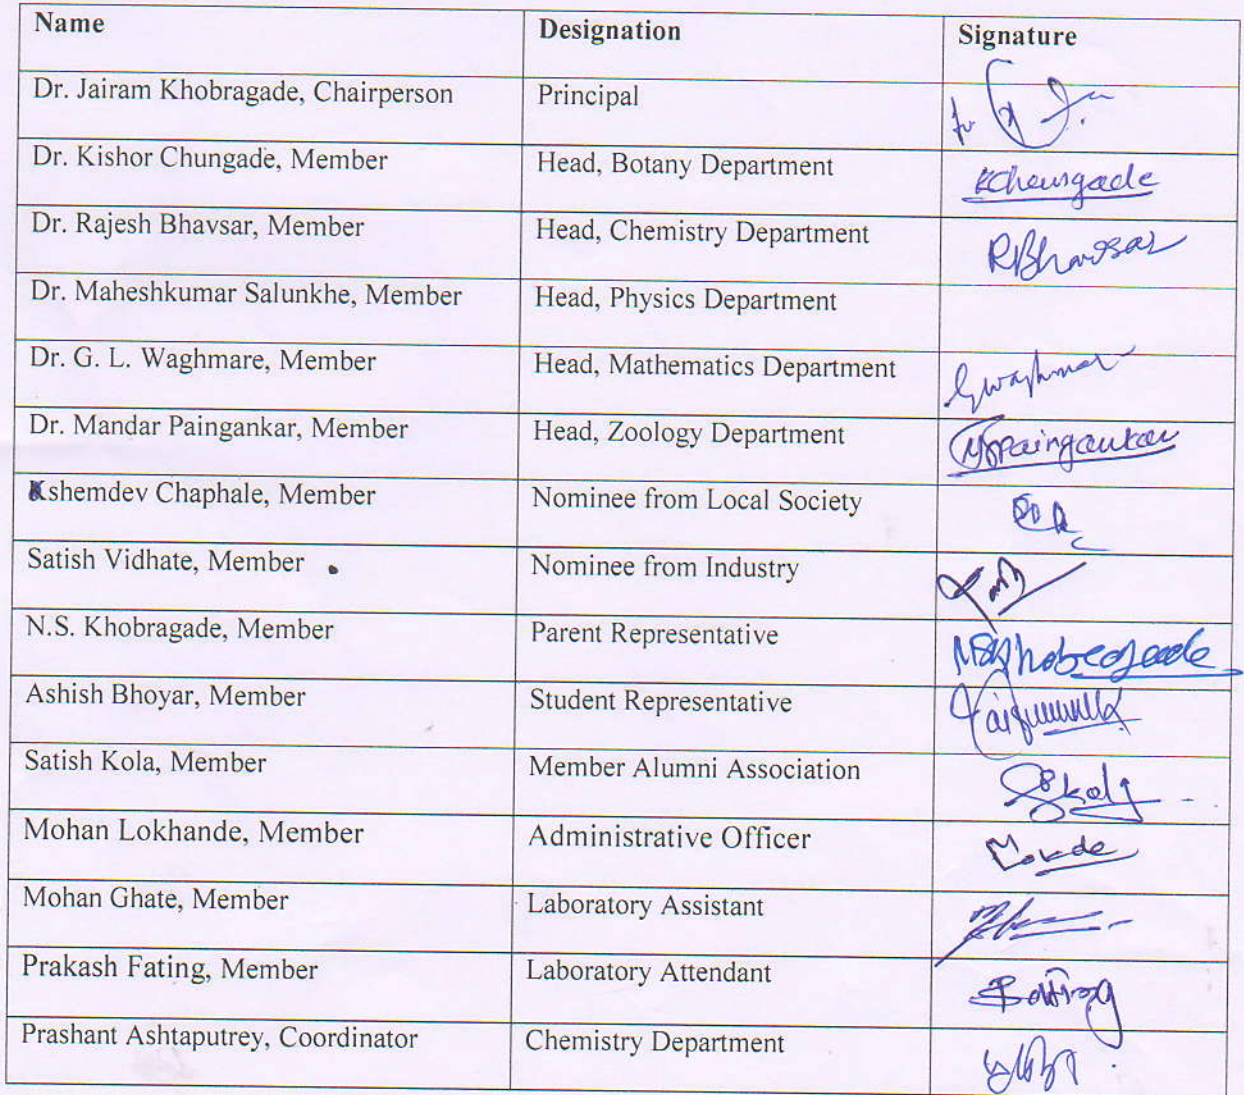 Name Designation Signature
Dr. Jairam Khobragade, Chairperson Principal
Dr. Kishor Chungade, Member Head, Botany Department KChungade
Dr. Rajesh Bhavsar, Member Head, Chemistry Department RBhavsar
Dr. Maheshkumar Salunkhe, Member Head, Physics Department
Dr. G. L. Waghmare, Member Head, Mathematics Department Gwaghmar
Dr. Mandar Paingankar, Member Head, Zoology Department Mppaingankar
Kshemdev Chaphale, Member Nominee from Local Society
Satish Vidhate, Member Nominee from Industry
N.S. Khobragade, Member Parent Representative NSKhobragade
Ashish Bhoyar, Member Student Representative
Satish Kola, Member Member Alumni Association
Mohan Lokhande, Member Administrative Officer
Mohan Ghate, Member Laboratory Assistant
Prakash Fating, Member Laboratory Attendant
Prashant Ashtaputrey, Coordinator Chemistry Department